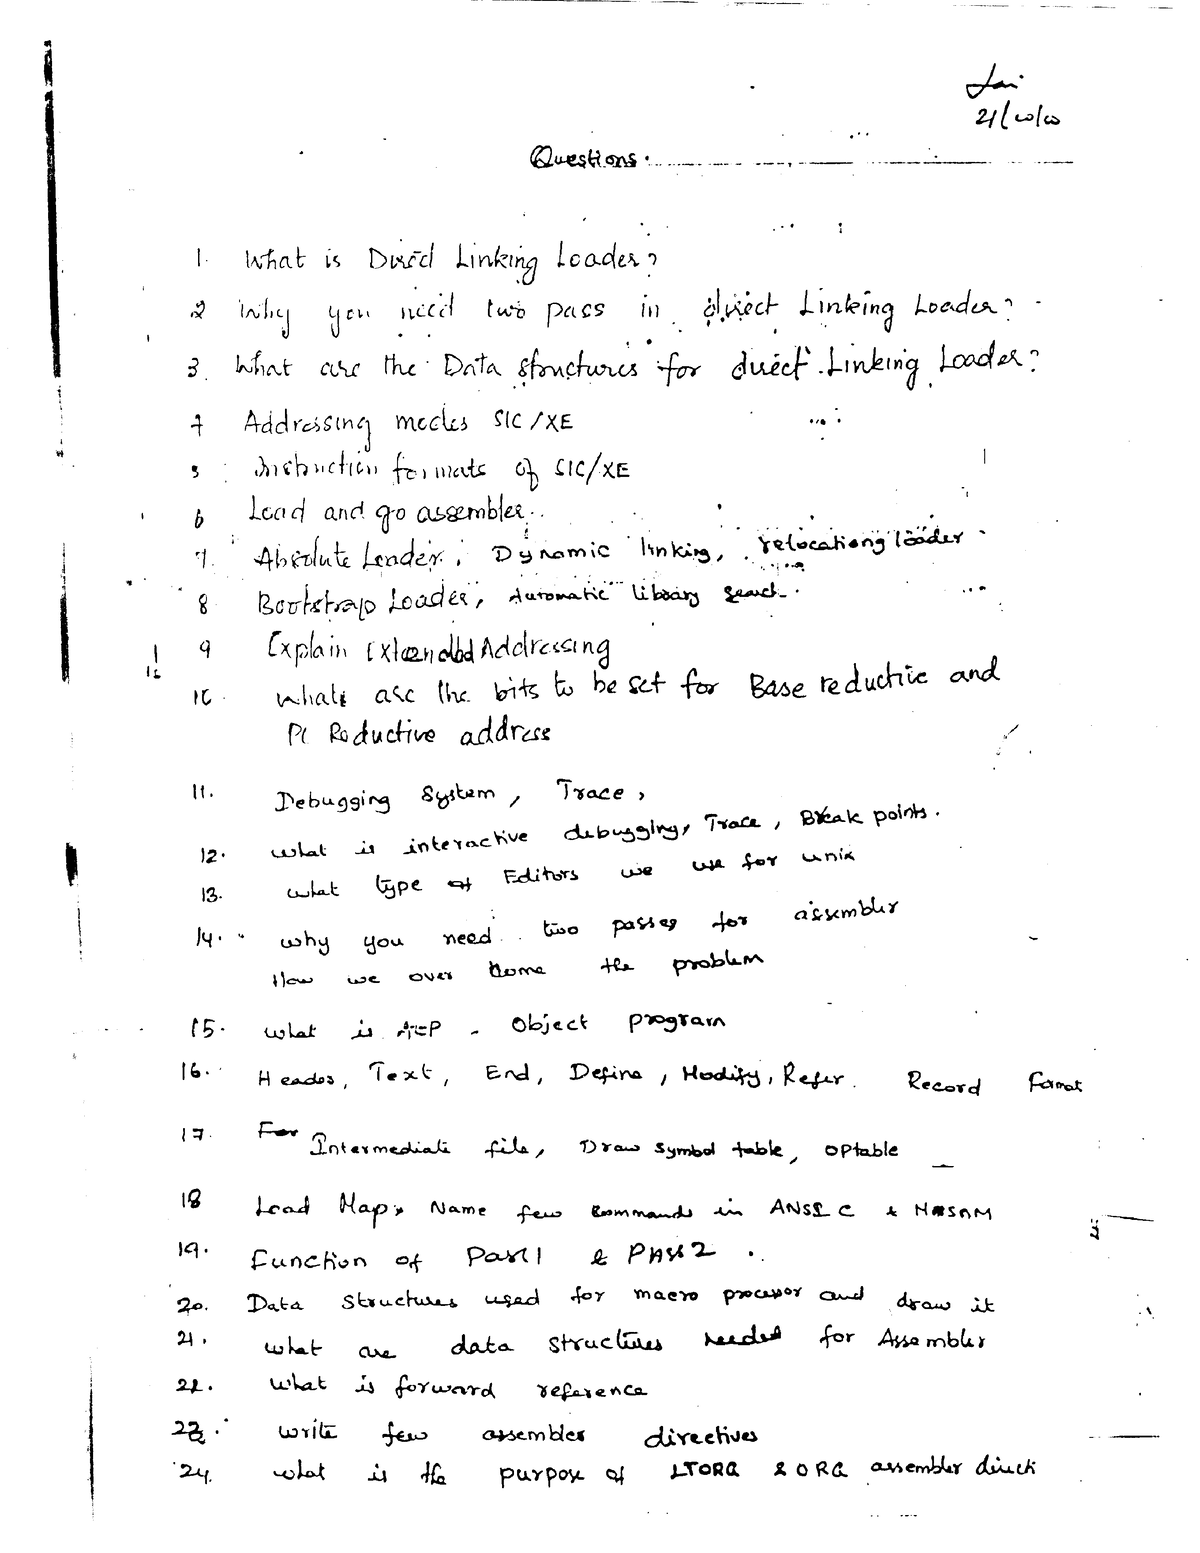 Jai
21/10/00
Questions.
1. What is Direct Linking Loader?
2 Why you need two pass in direct Linking Loader?
3. What are the Data structures for direct Linking Loader?
4 Addressing modes SIC/XE
5 Instruction formats of SIC/XE
6 Load and go assembler.
7. Absolute Loader, Dynamic linking, relocationg loader
8 Bootstrap Loader, Automatic library search.
9 Explain Extended Addressing
10. Whats are the bits to be set for Base reductive and
PC Reductive address
11. Debugging System, Trace,
12. what is interactive debugging, Trace, Break points.
13. what type of Editors we use for unix
14. why you need two passes for assembler
How we over come the problem
15. what is Object program
16. Header, Text, End, Define, Modify, Refer. Record Format
17. For Intermediate file, Draw symbol table, OPtable
18 Load Map, Name few commands in ANSI C &
19. Function of Pass1 & PASS2.
20. Data structures used for macro processor and draw it
21. what are data structures needed for Assembler
22. what is forward reference
23. write few assembler directives
24. what is the purpose of LTORG & ORG assembler direct